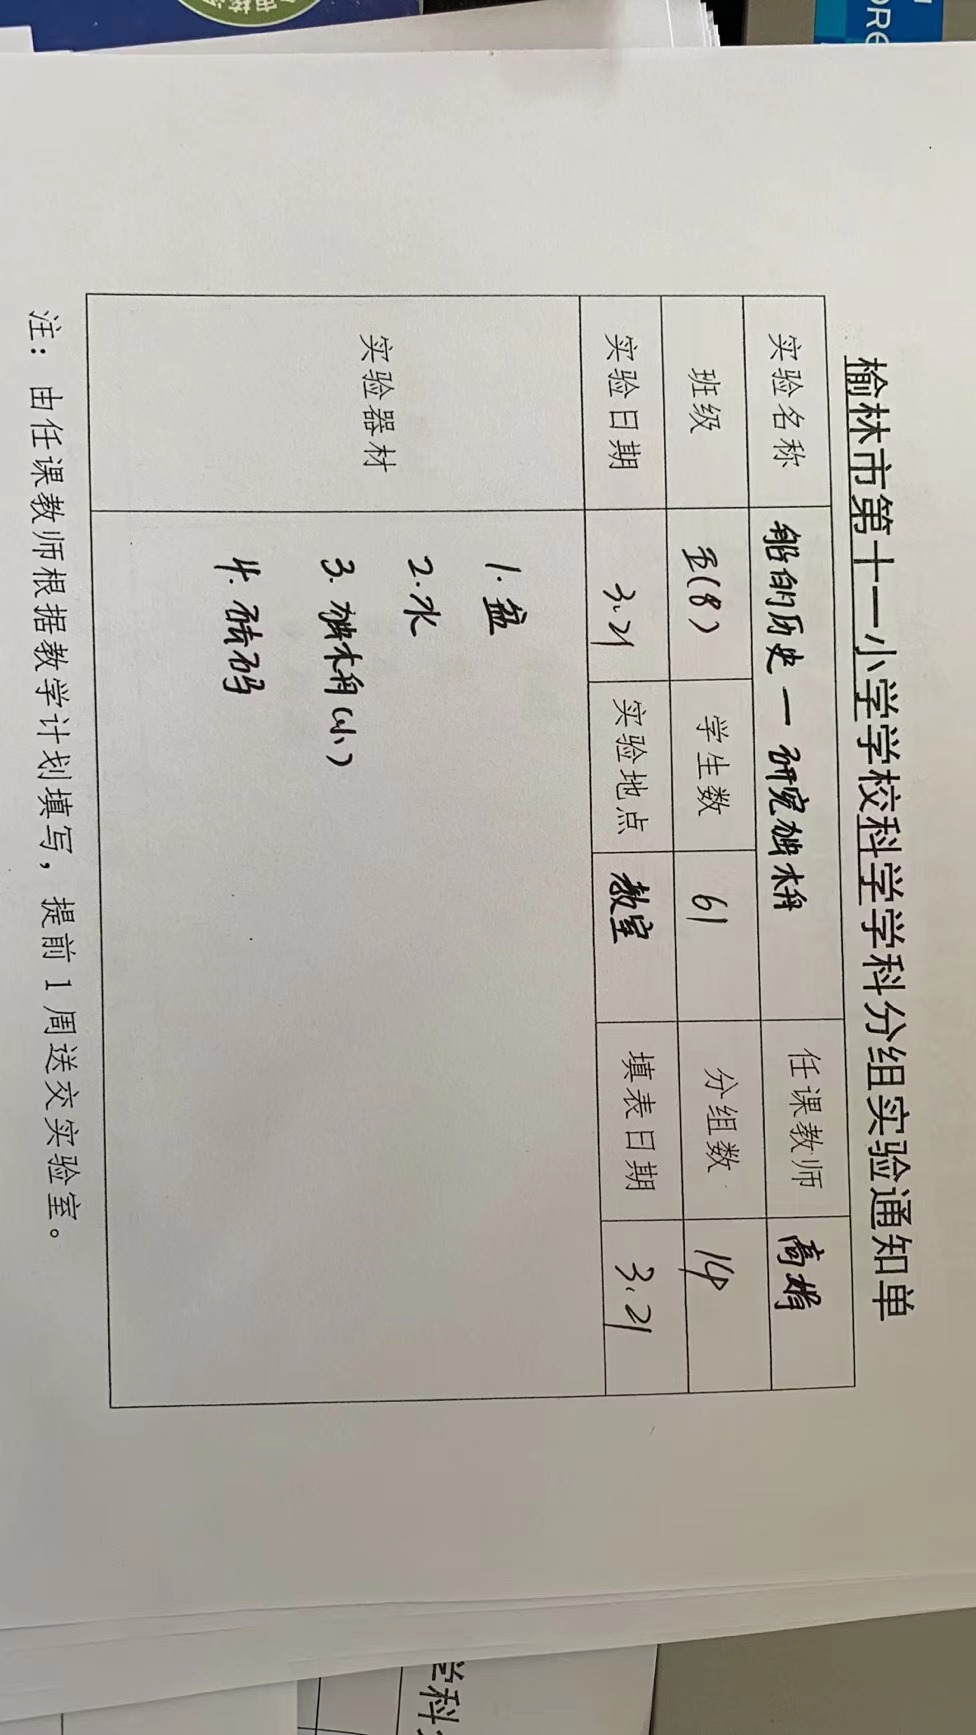 榆林市第十一小学学校科学学科分组实验通知单
实验名称 船的历史一研究独木舟 任课教师 高婷
班级 五(8) 学生数 61 分组数 14
实验日期 3.21 实验地点 教室 填表日期 3.21
实验器材
1.盆
2.水
3.独木舟(小)
4.砝码
注：由任课教师根据教学计划填写，提前1周送交实验室。
学科